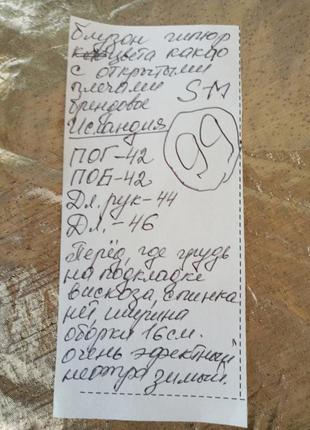 блузон гипюр
цвета какао
с открытыми
плечами
брендовое
S-M
Исландия
99
ПОГ-42
ПОБ-42
Дл. рук-44
Дл.-46
Перёд, где грудь
на подкладке
вискоза, спинка
нет, ширина
оборки 16см.
очень эфектный
неотразимый.